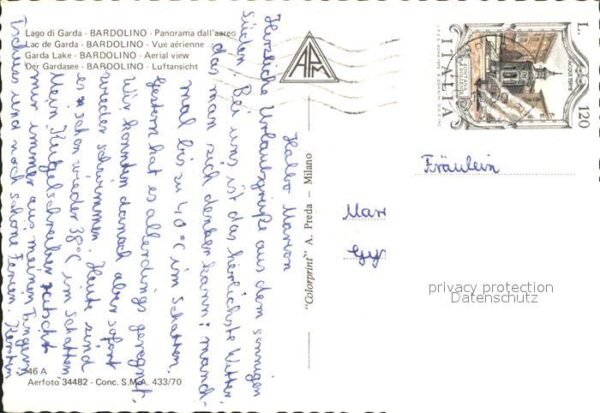 Lago di Garda - BARDOLINO - Panorama dall'aereo
Lac de Garda - BARDOLINO - Vue aérienne
Garda Lake - BARDOLINO - Aerial view
Der Gardasee - BARDOLINO - Luftansicht
APM
L. 120
ITALIA
Hallo Marion
Herzliche Urlaubsgrüße aus dem sonnigen
Süden. Bei uns ist das herrlichste Wetter
das man sich denken kann: manch-
mal bis zu 40°C im Schatten.
Gestern hat es allerdings geregnet.
Wir konnten danach aber sofort
wieder schwimmen. Heute sind
es schon wieder 38°C im Schatten.
Mein Kugelschreiber rutscht
mir immer aus meinen Fingern
Tschüss und noch schöne Ferien Kerstin
"Colorprint" A. Preda - Milano
Fräulein
Mar
Gy
privacy protection
Datenschutz
46 A
Aerfoto 34482 - Conc. S.M.A. 433/70